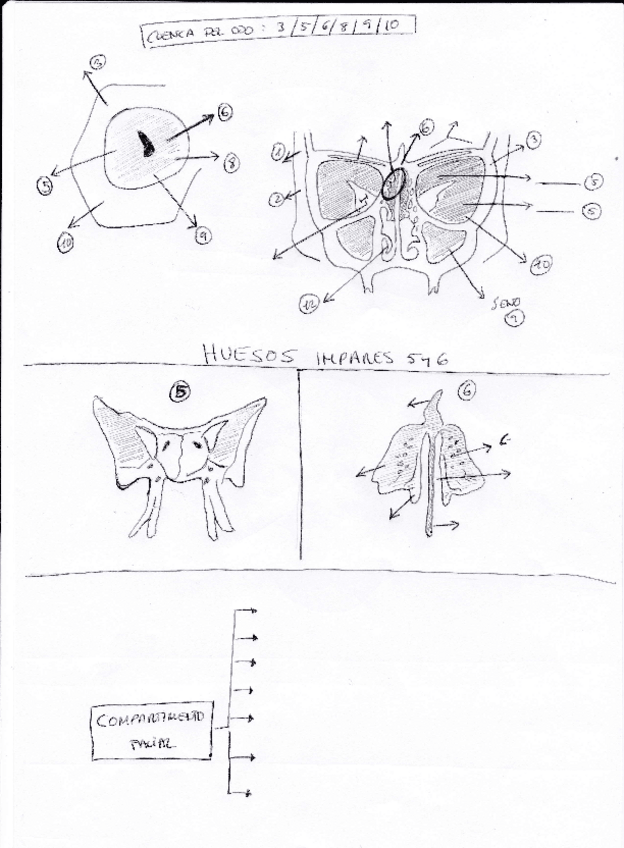 CUENCA DEL OJO : 3/5/6/8/9/10
3
6
8
5
10
9
6
1
3
2
5
5
10
12
SENO
9
HUESOS IMPARES 5 y 6
5
6
6
COMPARTIMENTO
FACIAL